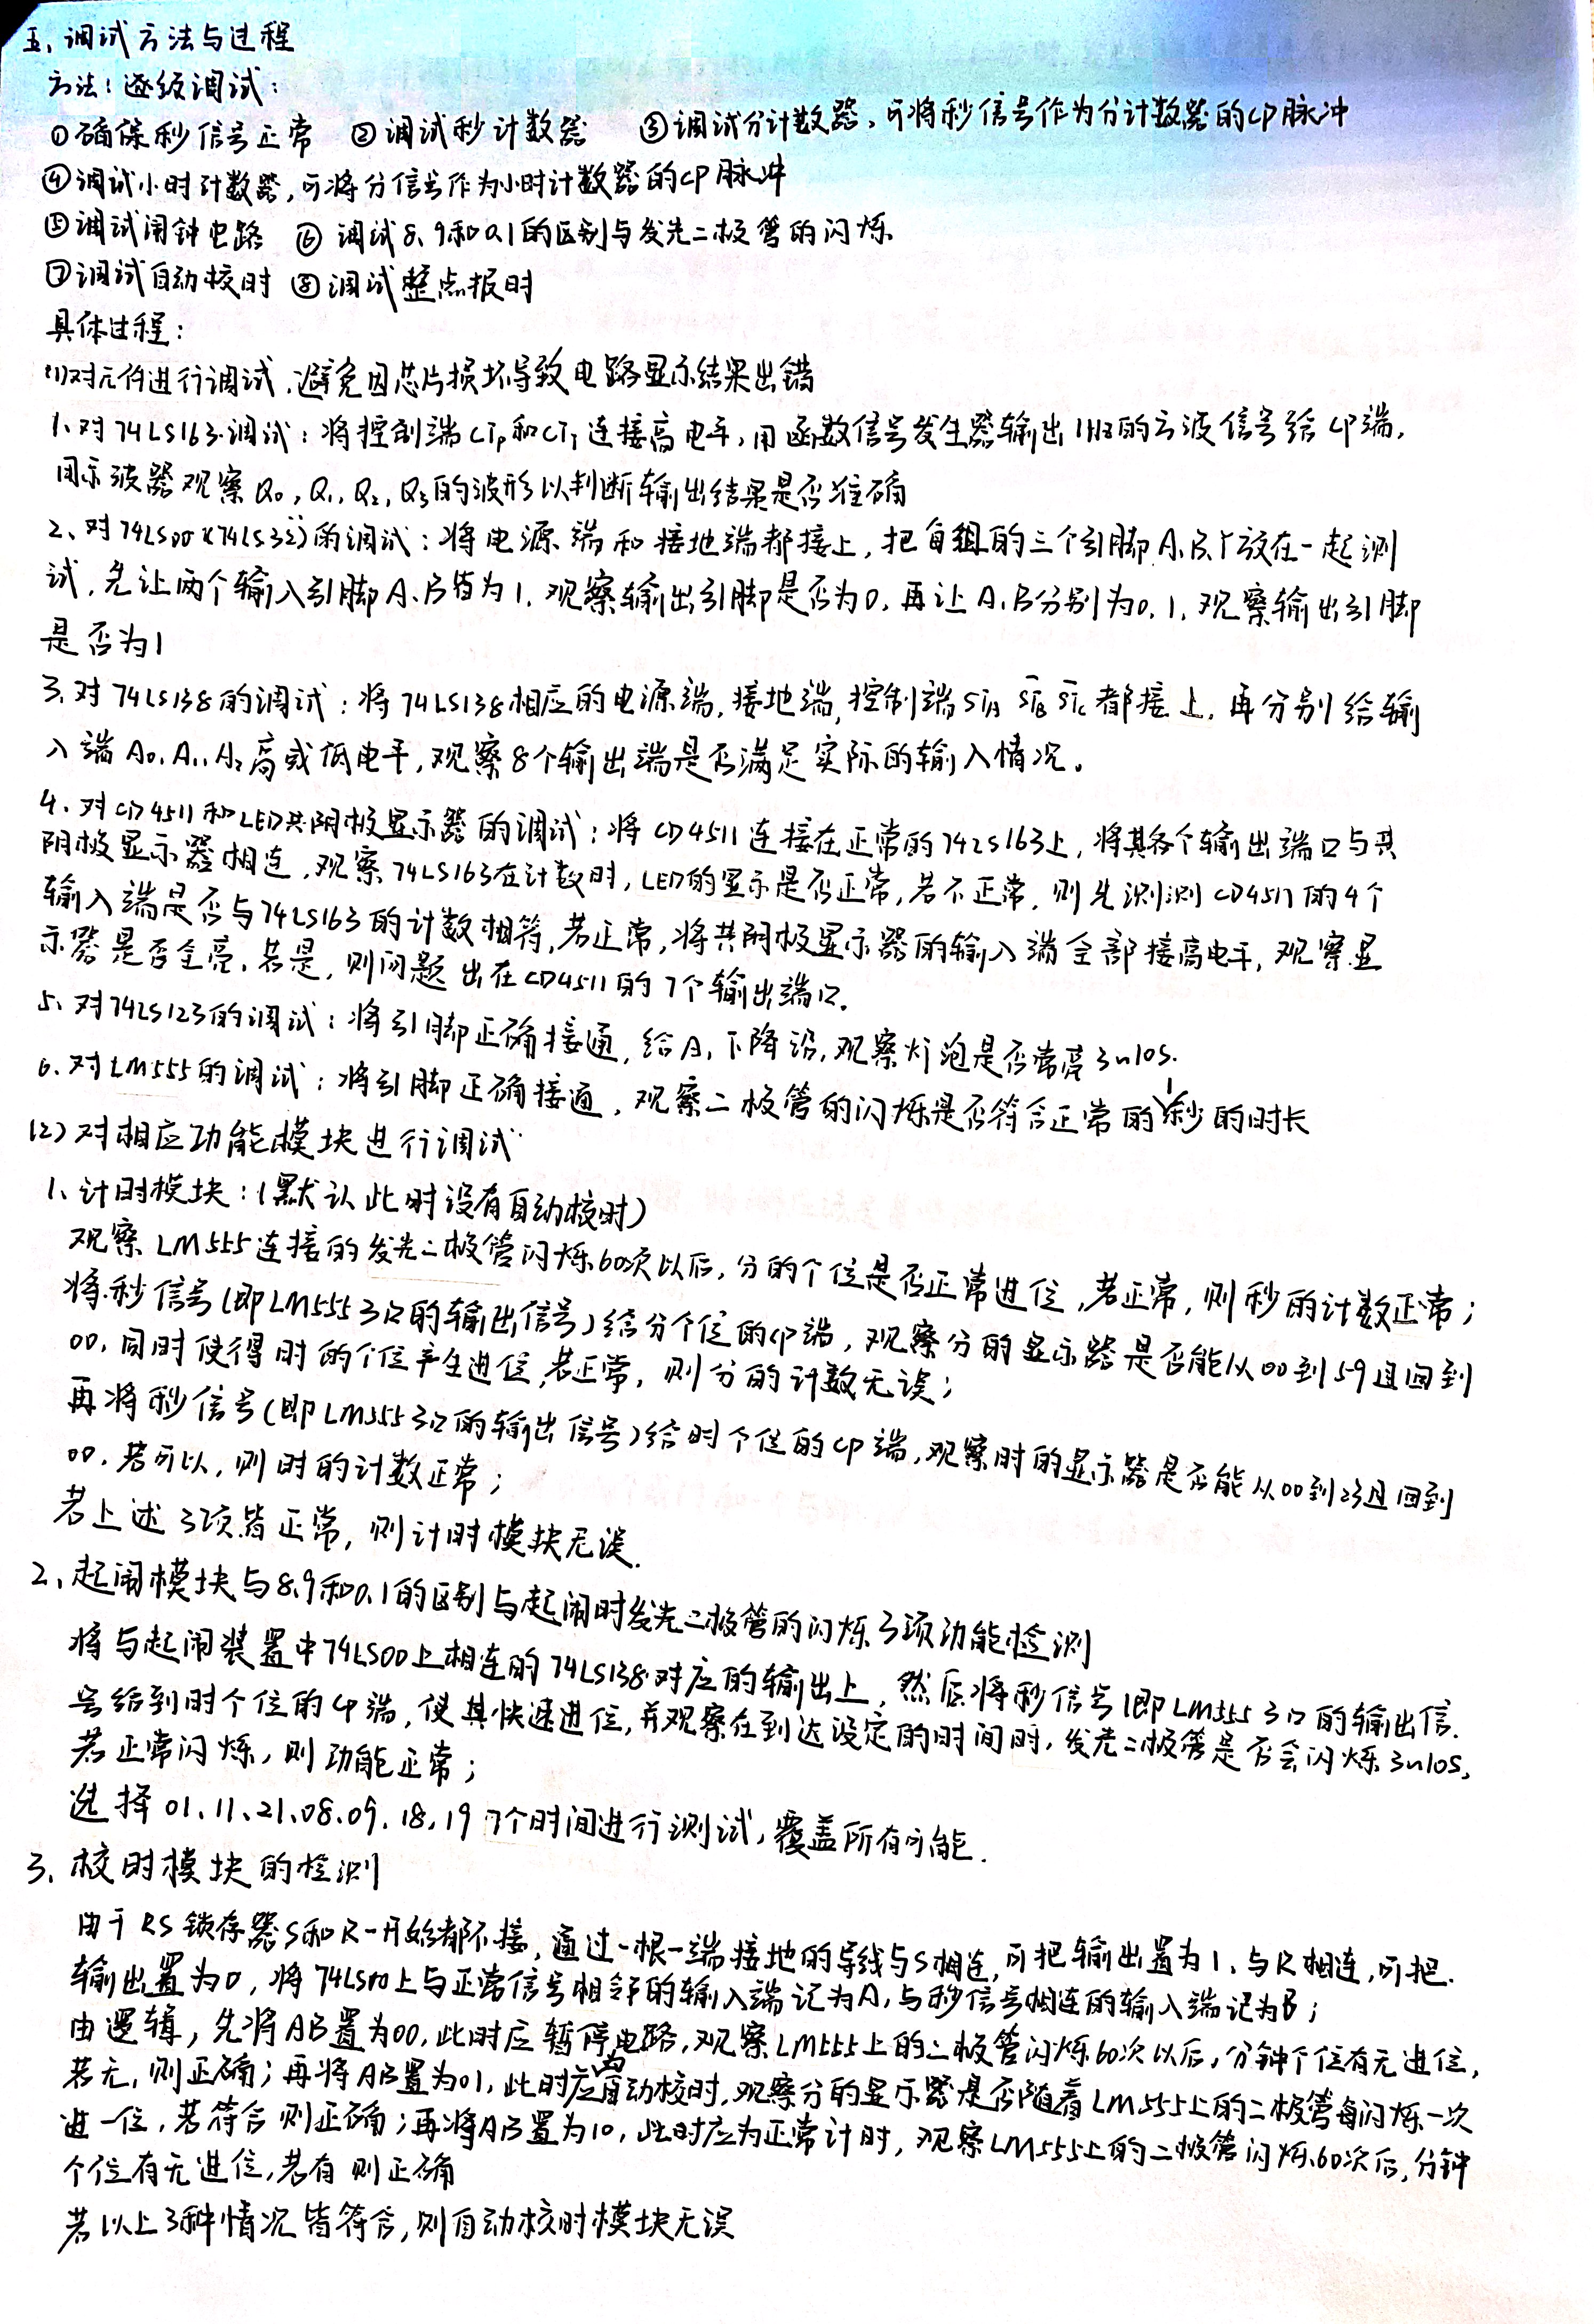 五、调试方法与过程
方法：逐级调试：
①确保秒信号正常 ②调试秒计数器 ③调试分计数器，可将秒信号作为分计数器的CP脉冲
④调试小时计数器，可将分信号作为小时计数器的CP脉冲
⑤调试闹钟电路 ⑥调试8、9和0.1的区别与发光二极管的闪烁
⑦调试自动校时 ⑧调试整点报时
具体过程：
(1)对元件进行调试，避免因芯片损坏导致电路显示结果出错
1、对74LS163调试：将控制端CTp和CTT连接高电平，用函数信号发生器输出1HZ的方波信号给CP端，
用示波器观察Q0，Q1，Q2，Q3的波形以判断输出结果是否准确
2、对74LS00(74LS32)的调试：将电源端和接地端都接上，把每组的三个引脚A、B、Y放在一起测
试，先让两个输入引脚A、B皆为1，观察输出引脚是否为0，再让A、B分别为0，1，观察输出引脚
是否为1
3、对74LS138的调试：将74LS138相应的电源端，接地端，控制端STA S̅T̅B̅ S̅T̅C̅都接上，再分别给输
入端A0、A1、A2高或低电平，观察8个输出端是否满足实际的输入情况。
4、对CD4511和LED共阴极显示器的调试：将CD4511连接在正常的74LS163上，将其各个输出端口与共
阴极显示器相连，观察74LS163在计数时，LED的显示是否正常，若不正常，则先测测CD4511的4个
输入端是否与74LS163的计数相符，若正常，将共阴极显示器的输入端全部接高电平，观察显
示器是否全亮，若是，则问题出在CD4511的7个输出端口。
5、对74LS123的调试：将引脚正确接通，给A1下降沿，观察灯泡是否常亮3~10s.
6、对LM555的调试：将引脚正确接通，观察二极管的闪烁是否符合正常的1秒的时长
(2)对相应功能模块进行调试
1、计时模块：(默认此时没有自动校时)
观察LM555连接的发光二极管闪烁60次以后，分的个位是否正常进位，若正常，则秒的计数正常；
将秒信号(即LM555 3口的输出信号)给分个位的CP端，观察分的显示器是否能从00到59且回到
00，同时使得时的个位产生进位，若正常，则分的计数无误；
再将秒信号(即LM555 3口的输出信号)给时个位的CP端，观察时的显示器是否能从00到23且回到
00，若可以，则时的计数正常；
若上述3项皆正常，则计时模块无误.
2、起闹模块与8.9和0.1的区别与起闹时发光二极管的闪烁3项功能检测
将与起闹装置中74LS00上相连的74LS138对应的输出上，然后将秒信号(即LM555 3口的输出信
号给到时个位的CP端，使其快速进位，并观察在到达设定的时间时，发光二极管是否会闪烁3~10s，
若正常闪烁，则功能正常；
选择01、11、21、08、09、18、19 7个时间进行测试，覆盖所有可能.
3、校时模块的检测
由于RS锁存器S和R一开始都不接，通过一根一端接地的导线与S相连，可把输出置为1、与R相连，可把
输出置为0，将74LS00上与正常信号相连的输入端记为A，与秒信号相连的输入端记为B；
由逻辑，先将AB置为00，此时应暂停电路，观察LM555上的二极管闪烁60次以后，分钟个位有无进位，
若无，则正确；再将AB置为01，此时应为自动校时，观察分的显示器是否随着LM555上的二极管每闪烁一次
进一位，若符合则正确；再将AB置为10，此时应为正常计时，观察LM555上的二极管闪烁60次后，分钟
个位有无进位，若有则正确
若以上3种情况皆符合，则自动校时模块无误